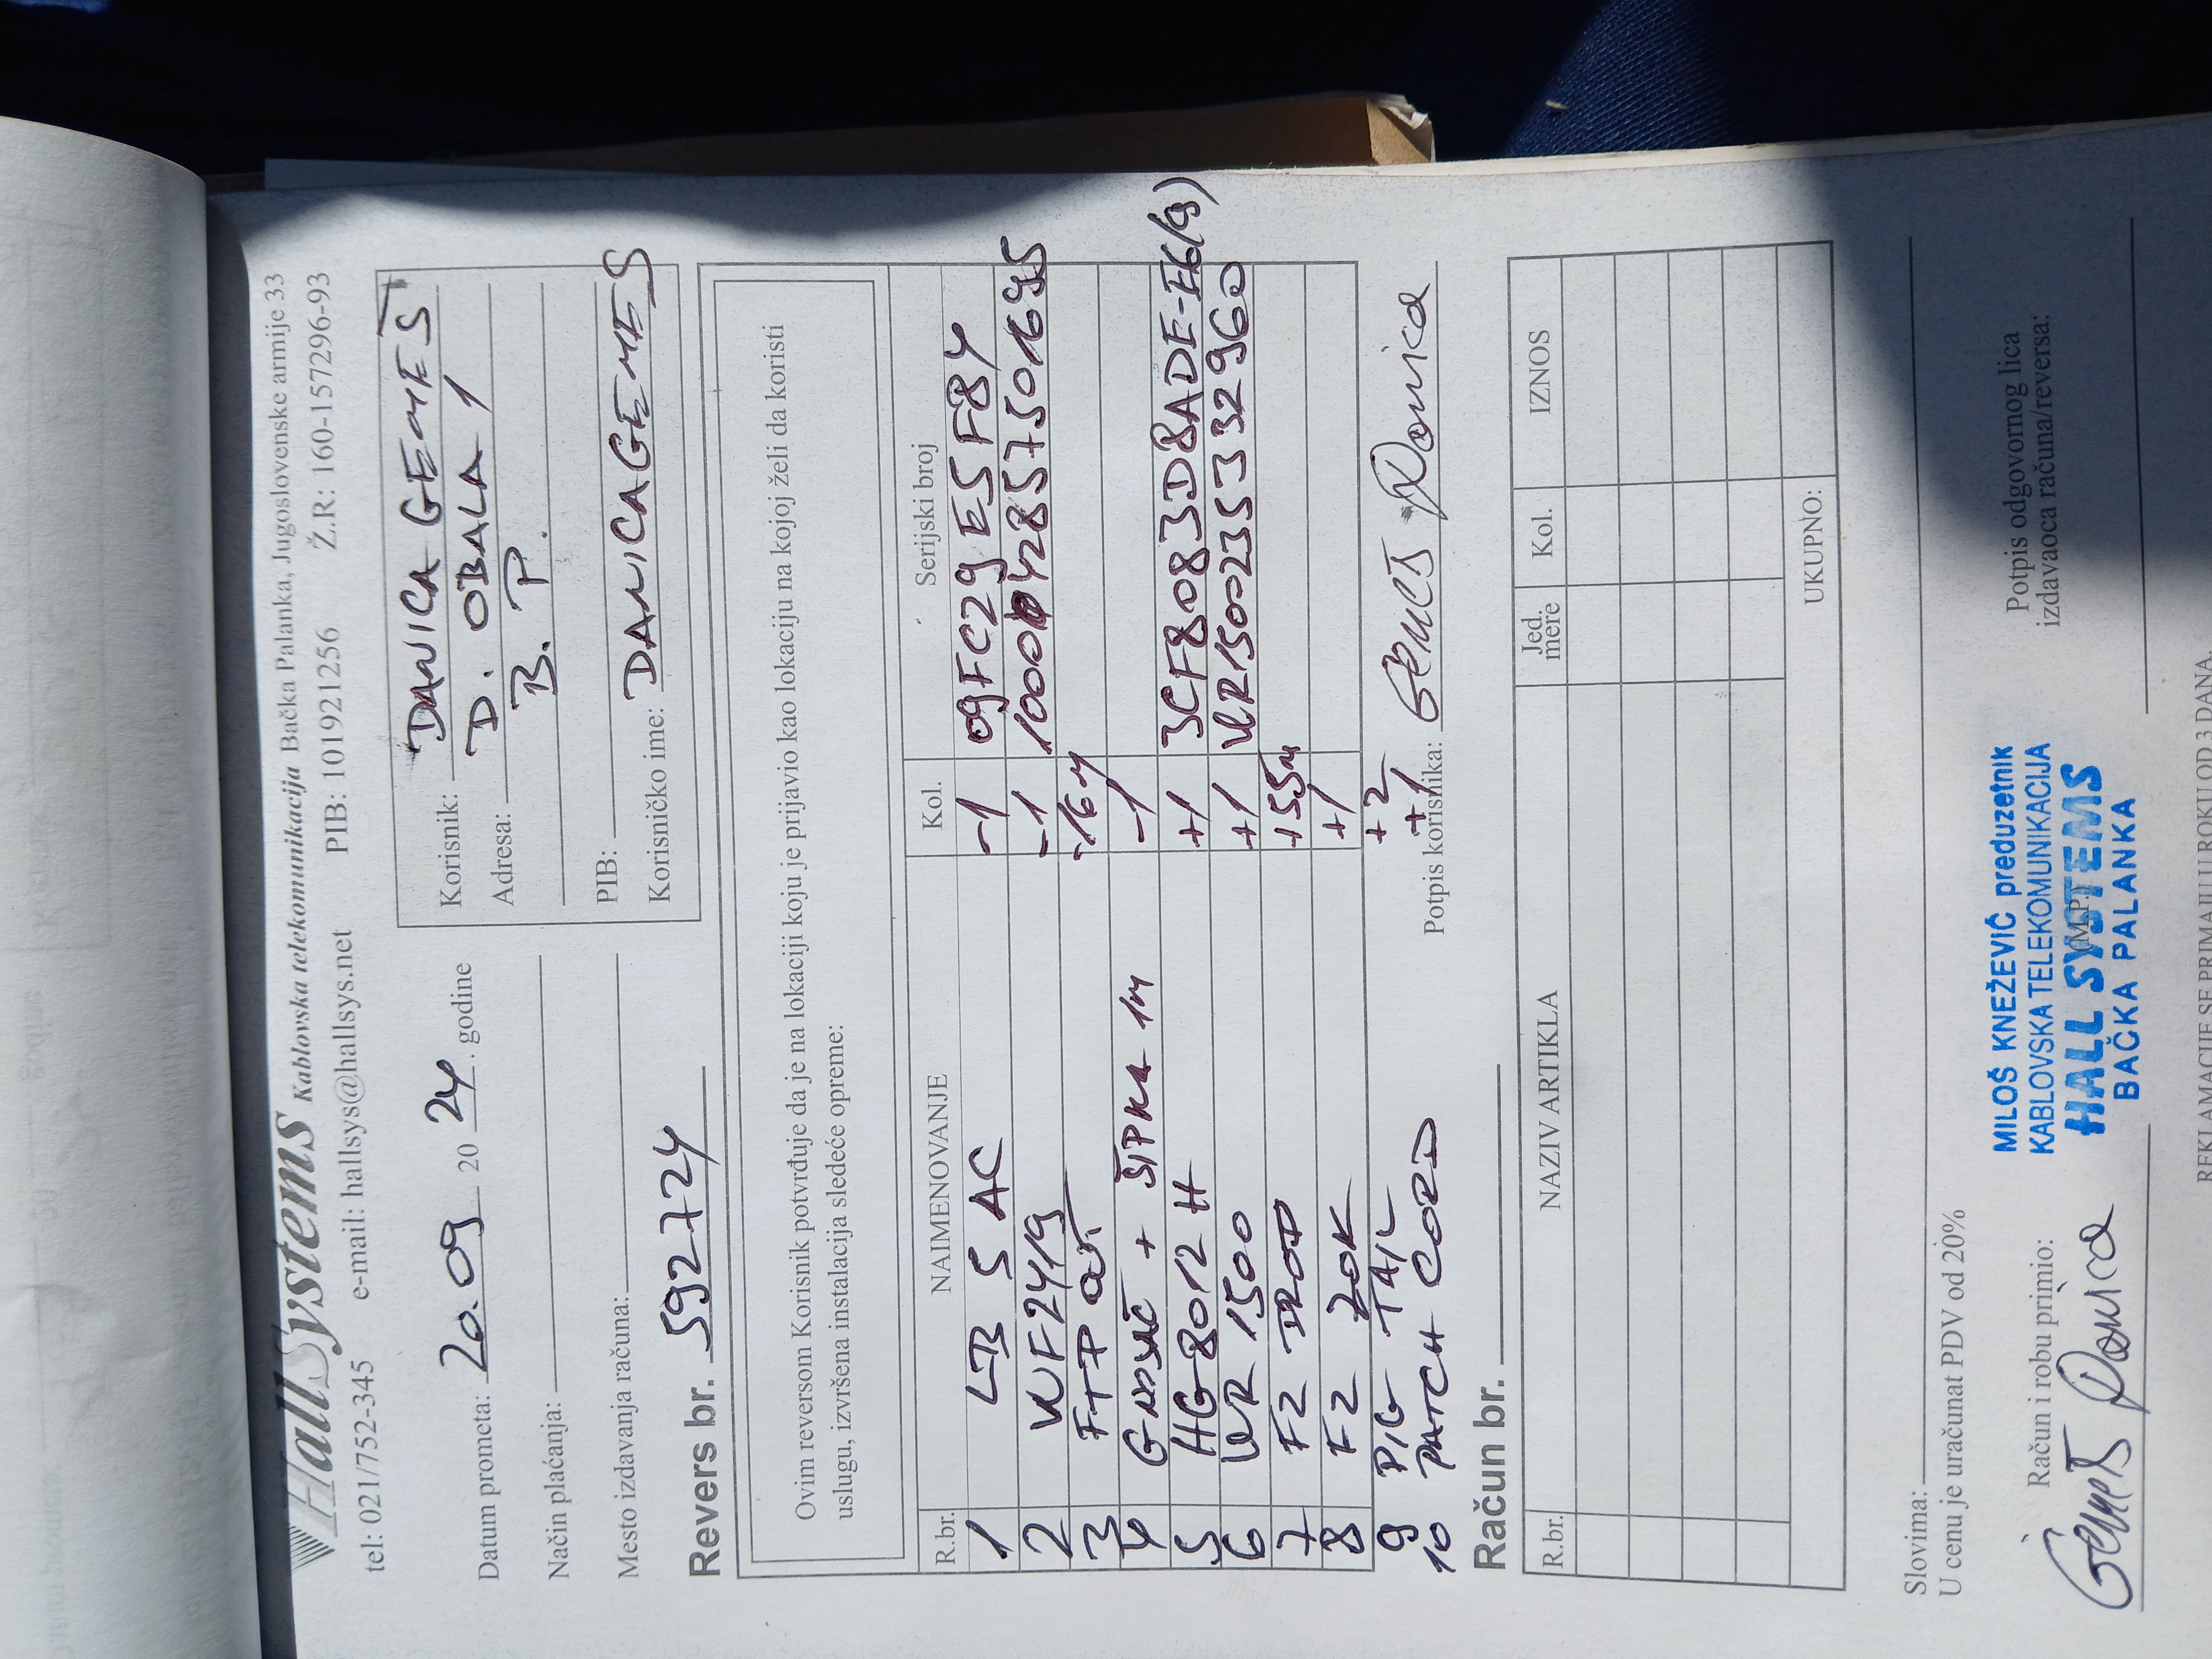 HallSystems Kablovska telekomunikacija Bačka Palanka, Jugoslovenske armije 33
tel: 021/752-345 e-mail: hallsys@hallsys.net PIB: 101921256 Ž.R: 160-157296-93
Datum prometa: 20.09 20 24. godine
Način plaćanja:
Mesto izdavanja računa:
Korisnik: DANICA GEMEŠ
Adresa: D. OBALA 1
B. P.
PIB:
Korisničko ime: DANICAGEMES
Revers br. 592724
Ovim reversom Korisnik potvrđuje da je na lokaciji koju je prijavio kao lokaciju na kojoj želi da koristi
uslugu, izvršena instalacija sledeće opreme:
R.br. NAIMENOVANJE Kol. Serijski broj
1 LB 5 AC -1
2 -1
3 FTP -16m
4 + ŠIPKA 1m -1
5 HG 8012 H +1 3CF8083D8ADE-E6(9)
6 WR 1500 +1 WR15002353332960
7 FZ DROP +55m
8 FZ ZOK +1
9 PIG TAIL +2
10 PATCH CORD +1
Potpis korisnika: Gemeš Danica
Račun br.
R.br. NAZIV ARTIKLA Jed. mere Kol. IZNOS
UKUPNO:
Slovima:
U cenu je uračunat PDV od 20%
Račun i robu primio:
Gemeš Danica
(M.P.)
MILOŠ KNEŽEVIĆ preduzetnik
KABLOVSKA TELEKOMUNIKACIJA
HALL SYSTEMS
BAČKA PALANKA
Potpis odgovornog lica
izdavaoca računa/reversa:
REKLAMACIJE SE PRIMAJU U ROKU OD 3 DANA.